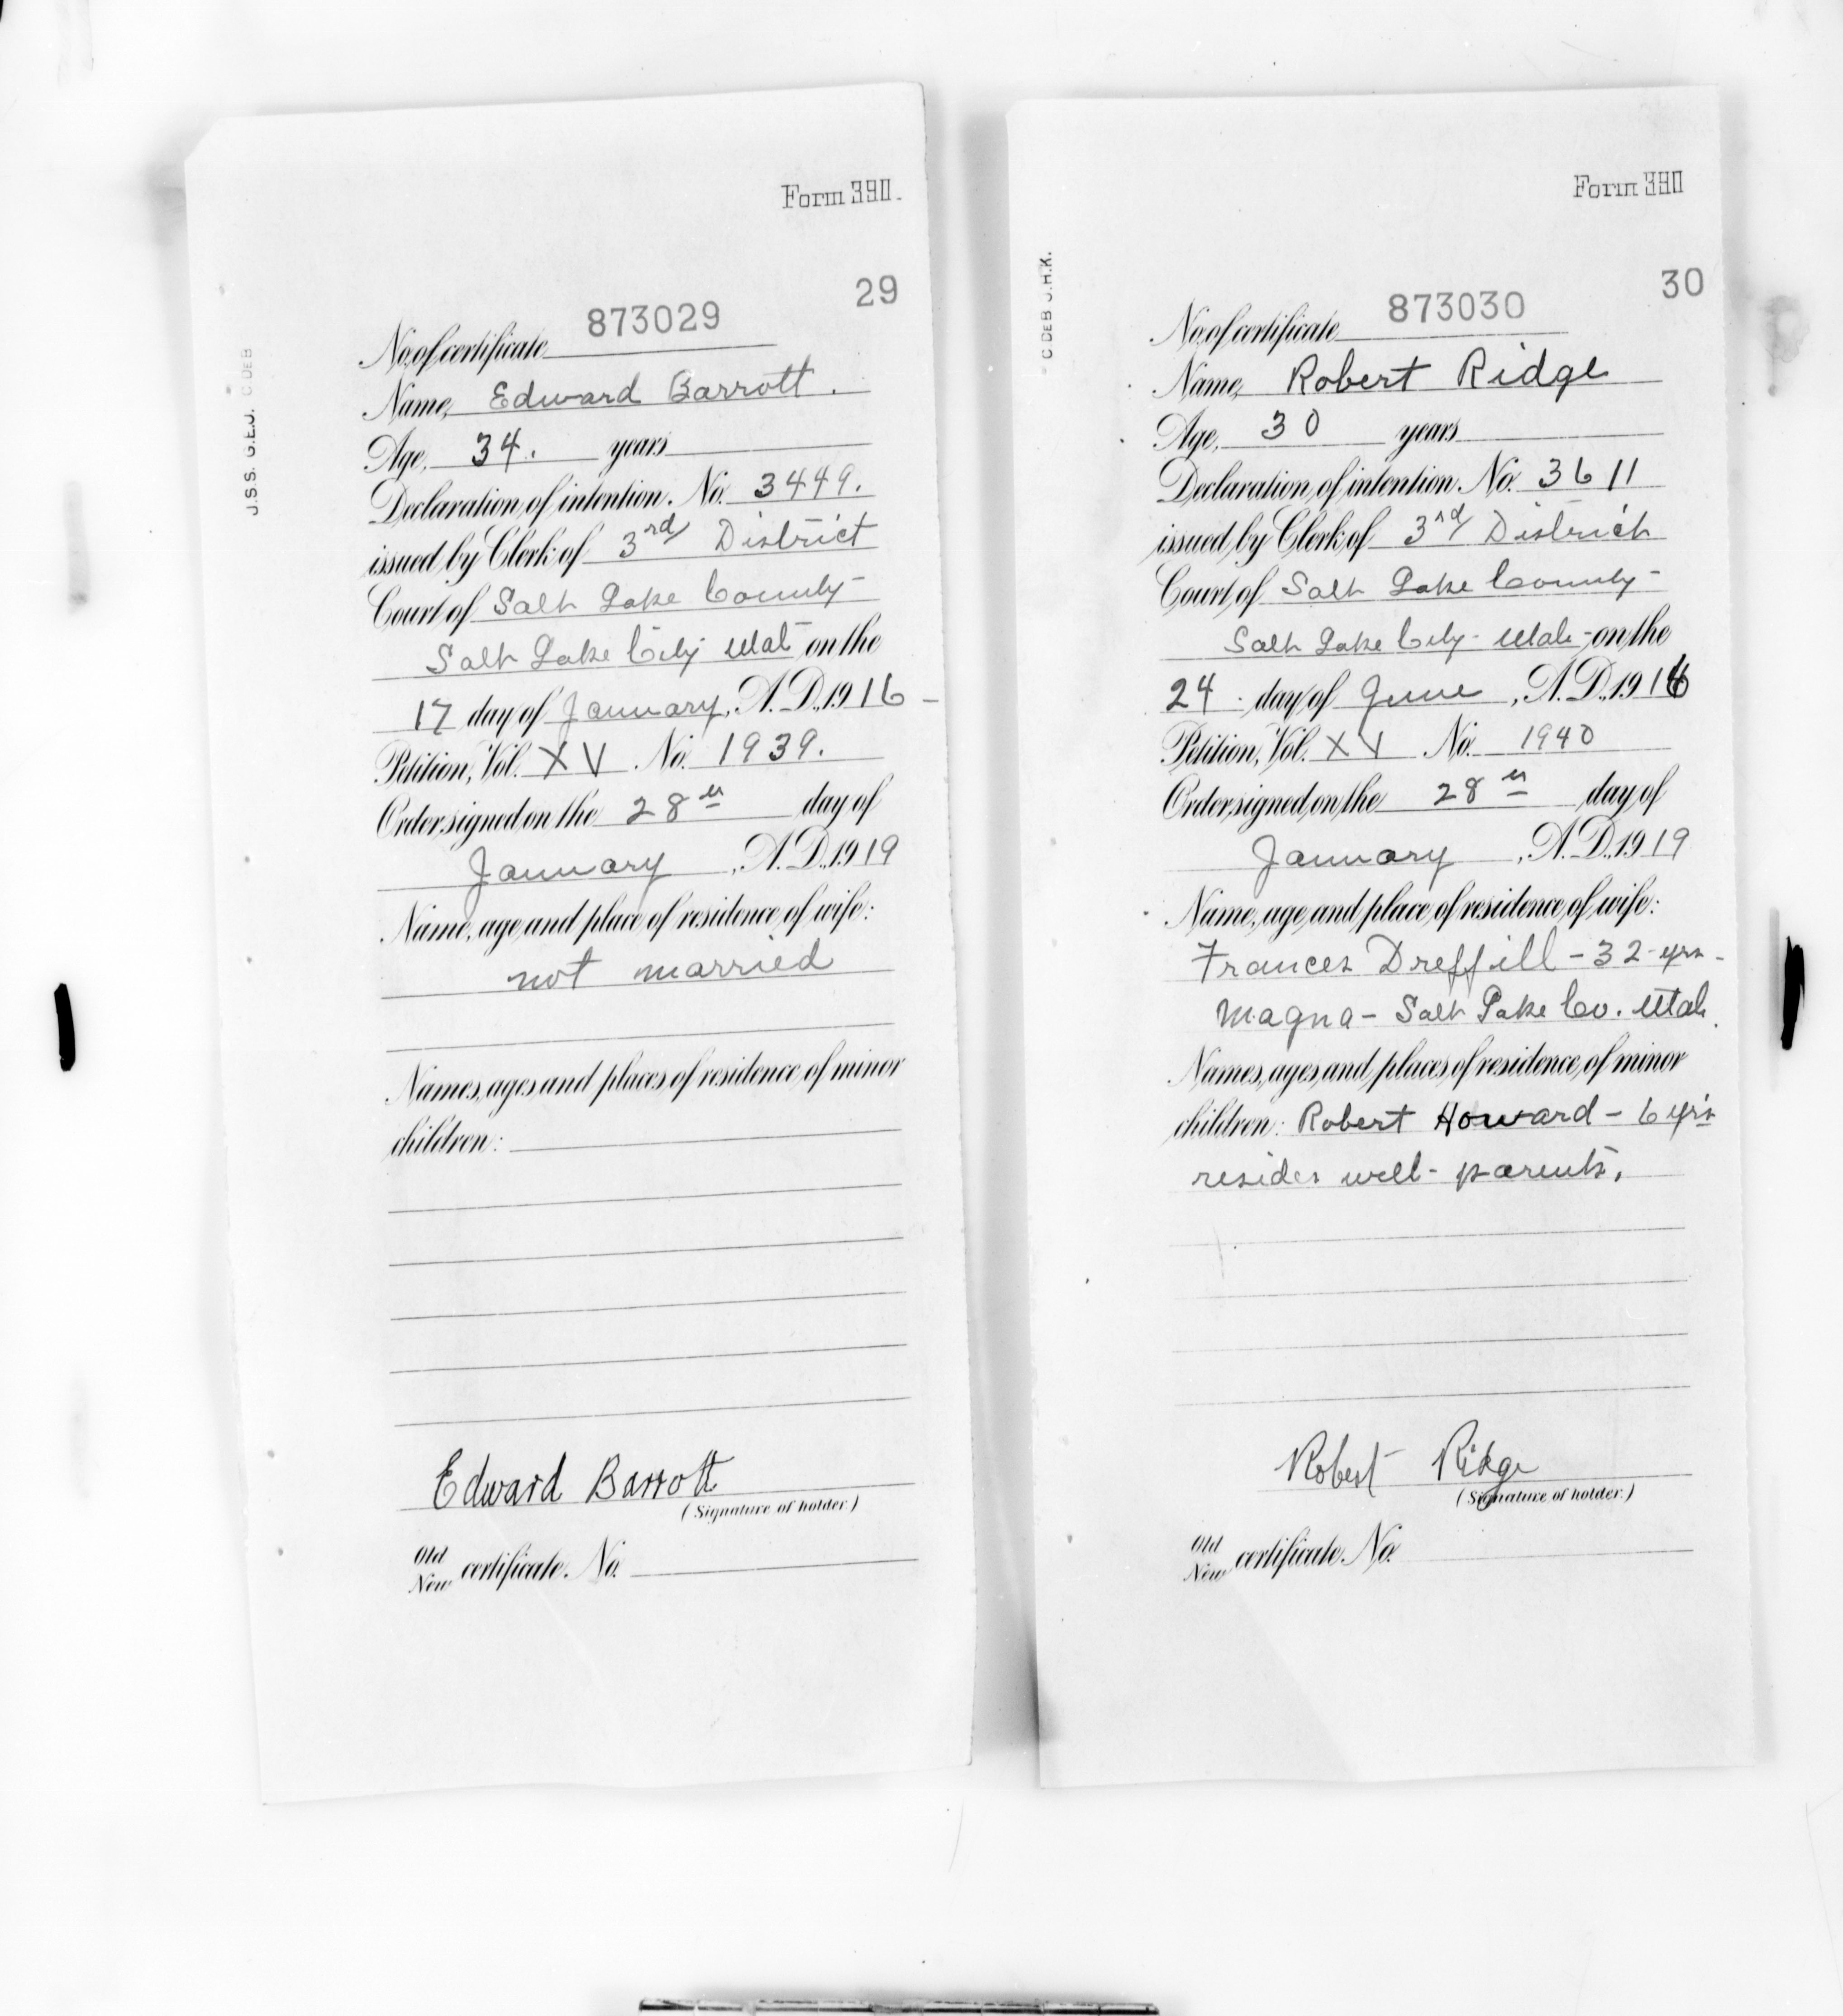 Form 390.
29
J.S.S. G.E.J. C DEB
No. of certificate 873029
Name, Edward Barrott.
Age, 34. years
Declaration of intention. No. 3449.
issued by Clerk of 3rd District
Court of Salt Lake County-
Salt Lake City Utah on the
17 day of January, A.D. 1916 -
Petition, Vol. XV No. 1939.
Order signed on the 28th day of
January, A.D. 1919
Name, age and place of residence of wife:
not married
Names, ages and places of residence of minor
children:
Edward Barrott
(Signature of holder.)
Old
New certificate. No.
Form 390
30
C DEB J.H.K.
No. of certificate 873030
Name, Robert Ridge
Age, 30 years
Declaration of intention No. 3611
issued by Clerk of 3rd District
Court of Salt Lake County-
Salt Lake City- Utah- on the
24 day of June, A.D. 1916
Petition, Vol. XV No. 1940
Order signed on the 28th day of
January, A.D. 1919
Name, age and place of residence of wife:
Frances Dreffill - 32 yrs -
Magna - Salt Lake Co. Utah.
Names, ages and places of residence of minor
children: Robert Howard - 6 yrs
resides with parents.
Robert Ridge
(Signature of holder.)
Old
New certificate. No.